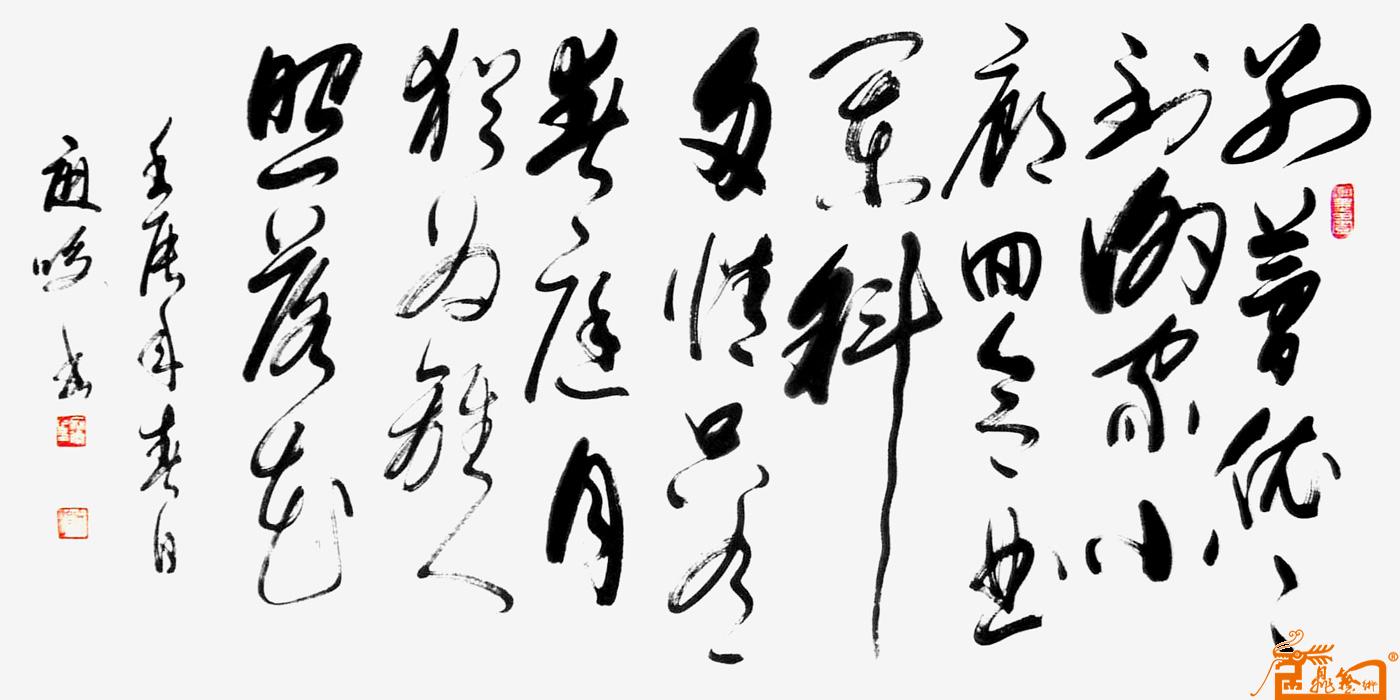 别夢依依
到謝家小
廊回合曲
闌斜
多情只有
春庭月
猶为離人
照落花
壬辰年春日
书